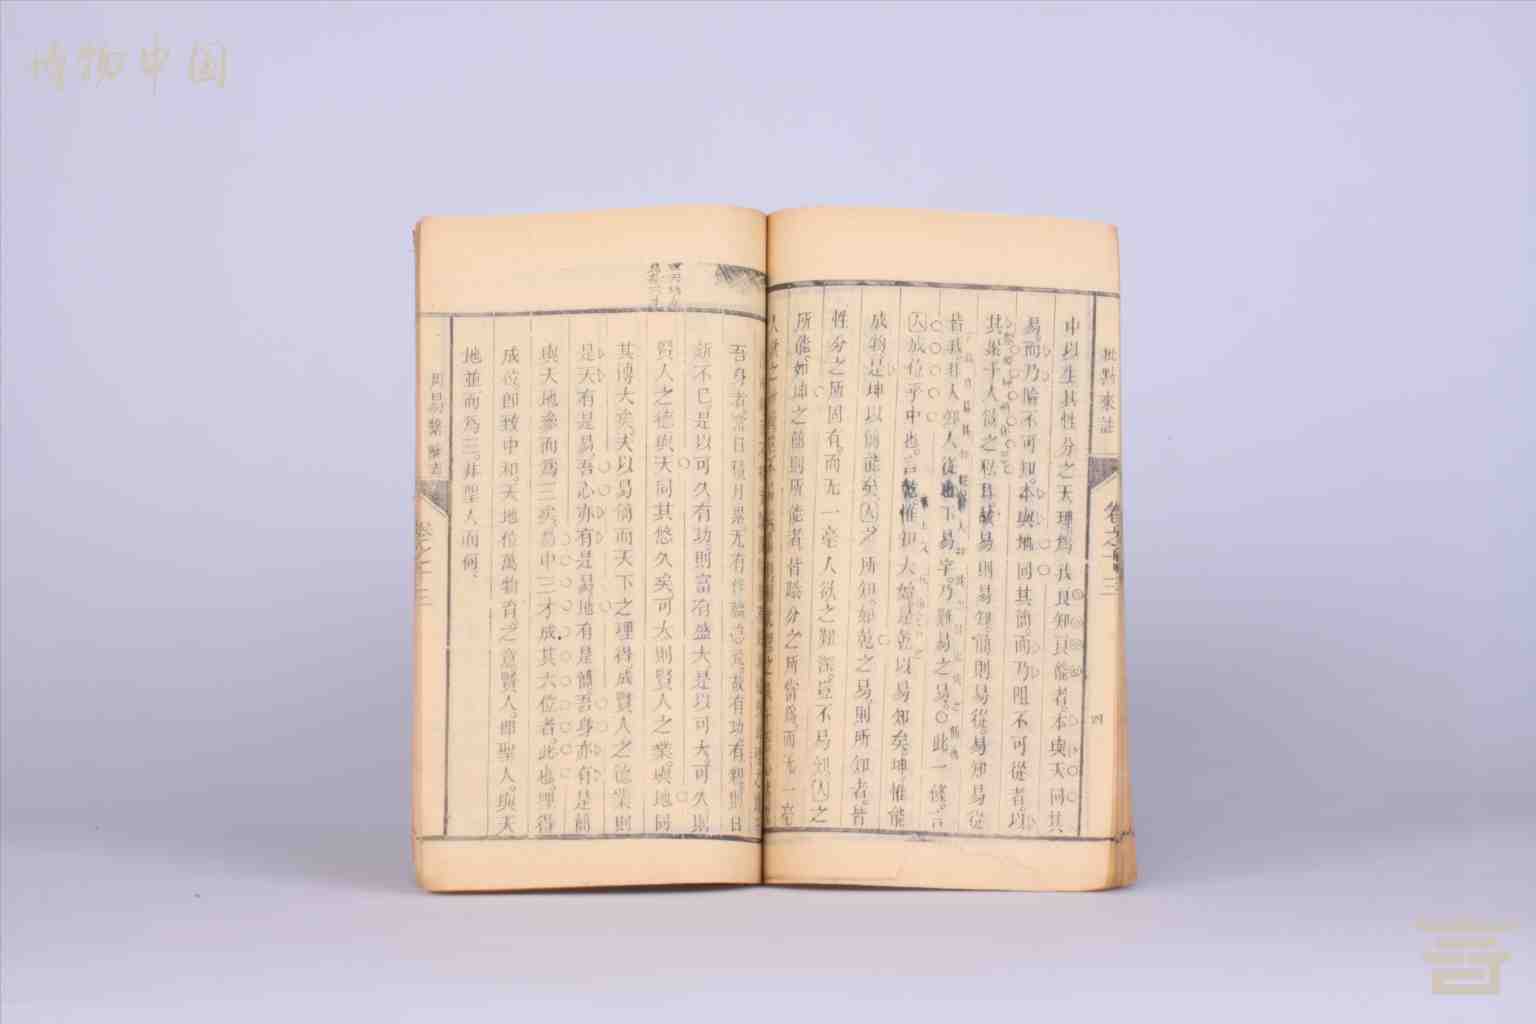 博物中国
批點來註
卷之十三
四
中以生其性分之天理爲我良知良能者本與天同其
易而乃險不可知本與地同其簡而乃阻不可從者以
其累于人欲之私耳故易則易知簡則易從易知易從
皆我非人知人從也下易字乃難易之易○此一條言
人成位乎中也言乾惟知大始是乾以易知矣坤惟能
成物是坤以簡能矣人之所知如乾之易則所知者皆
性分之所固有而无一毫人欲之艱深豈不易知人之
所能如坤之簡則所能者皆職分之所當爲而无一毫
吾身者常日積月累无有
故有功有親則日
新不已是以可久有功則富有盛大是以可大可久則
賢人之德與天同其悠久矣可大則賢人之業與地同
其博大矣夫以易簡而天下之理得成賢人之德業則
是天有是易吾心亦有是易地有是簡吾身亦有是簡
與天地參而爲三矣易中三才成其六位者此也理得
成位即致中和天地位萬物育之意賢人即聖人與天
地並而爲三非聖人而何
周易繫辭
卷之十三